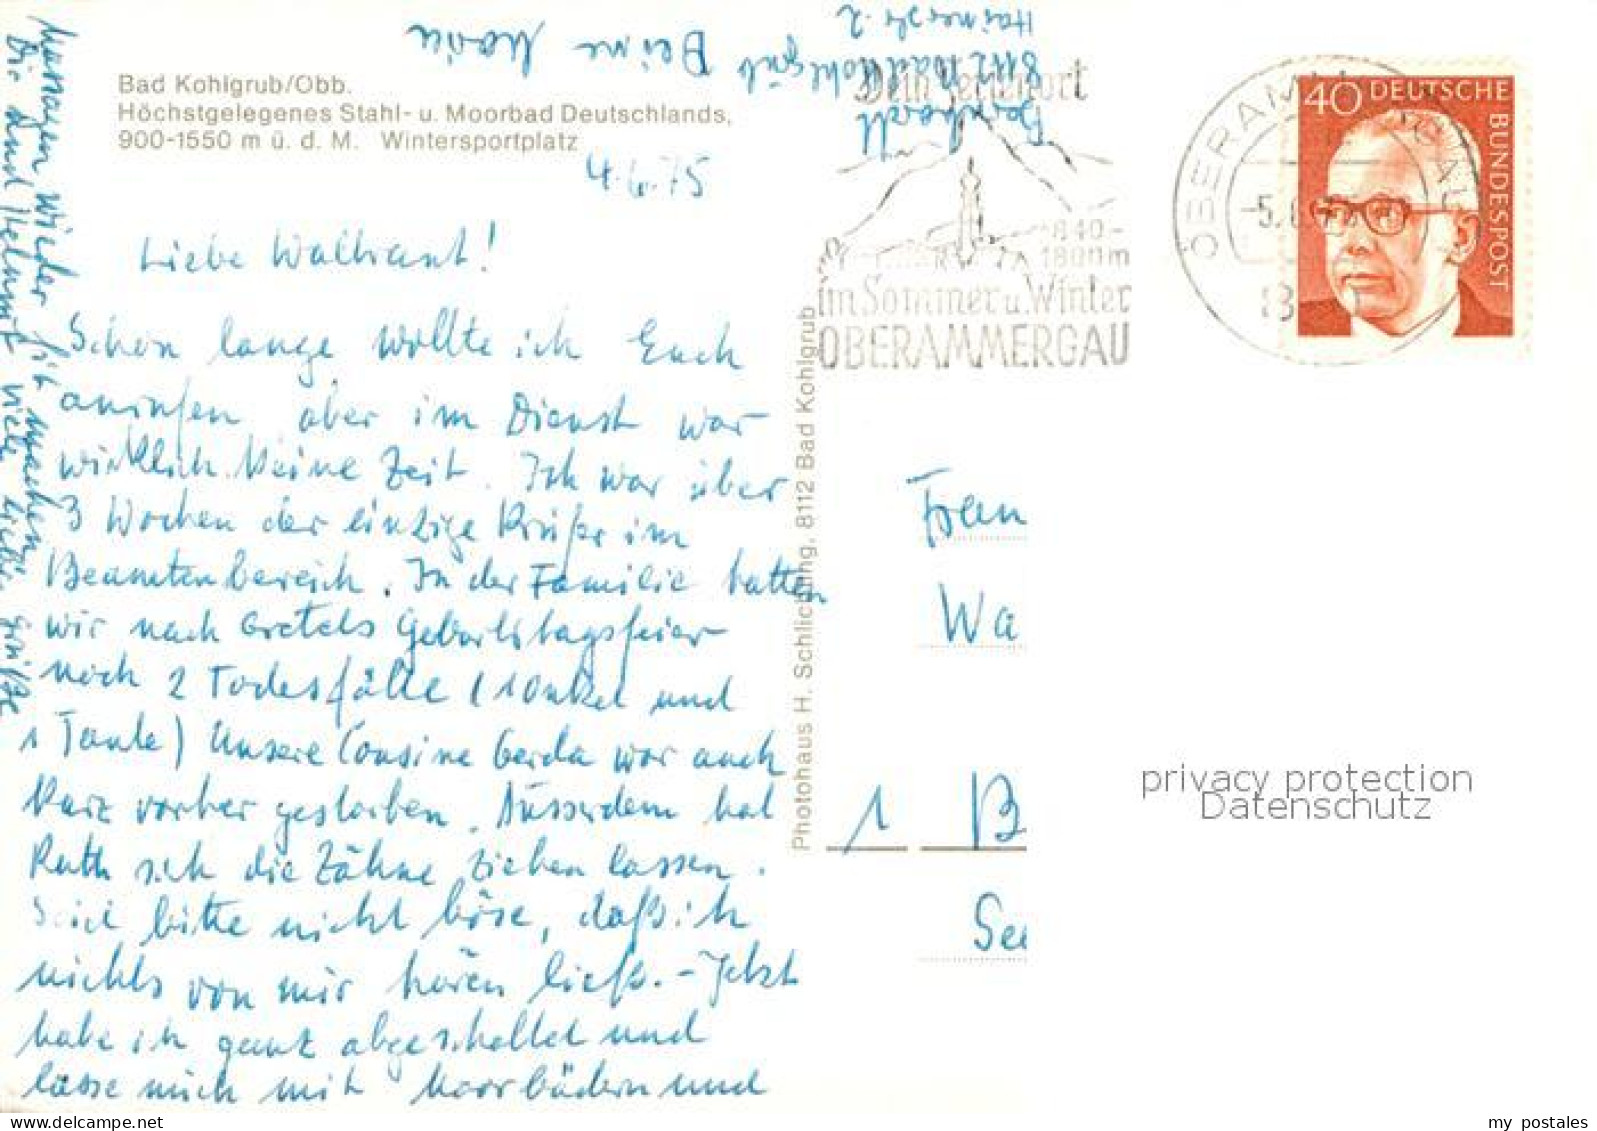 Bad Kohlgrub/Obb.
Höchstgelegenes Stahl- u. Moorbad Deutschlands,
900-1550 m ü. d. M. Wintersportplatz
4.6.75
Liebe Waltraut!
Schon lange wollte ich Euch
anrufen aber im Dienst war
wirklich keine Zeit. Ich war über
3 Wochen der einzige Prüfer im
Beamtenbereich. In der Familie hatten
wir nach Gretels Geburtstagsfeier
noch 2 Todesfälle (1 Onkel und
1 Tante) Unsere Cousine Gerda war auch
kurz vorher gestorben. Ausserdem hat
Ruth sich die Zähne ziehen lassen.
Seid bitte nicht böse, daß ich
nichts von mir hören ließ. - Jetzt
habe ich ganz abgeschaltet und
lasse mich mit Moorbädern und
Massagen wieder fit machen.
Dir und Helmut viele liebe Grüße
Deine Maria
8112 Bad Kohlgrub
Dein Ferienort
840-
1800m
im Sommer u. Winter
OBERAMMERGAU
OBERAMMERGAU
40 DEUTSCHE
BUNDESPOST
Photohaus H. Schlichting, 8112 Bad Kohlgrub
Frau
Wa
1 B
See
privacy protection
Datenschutz
my postales